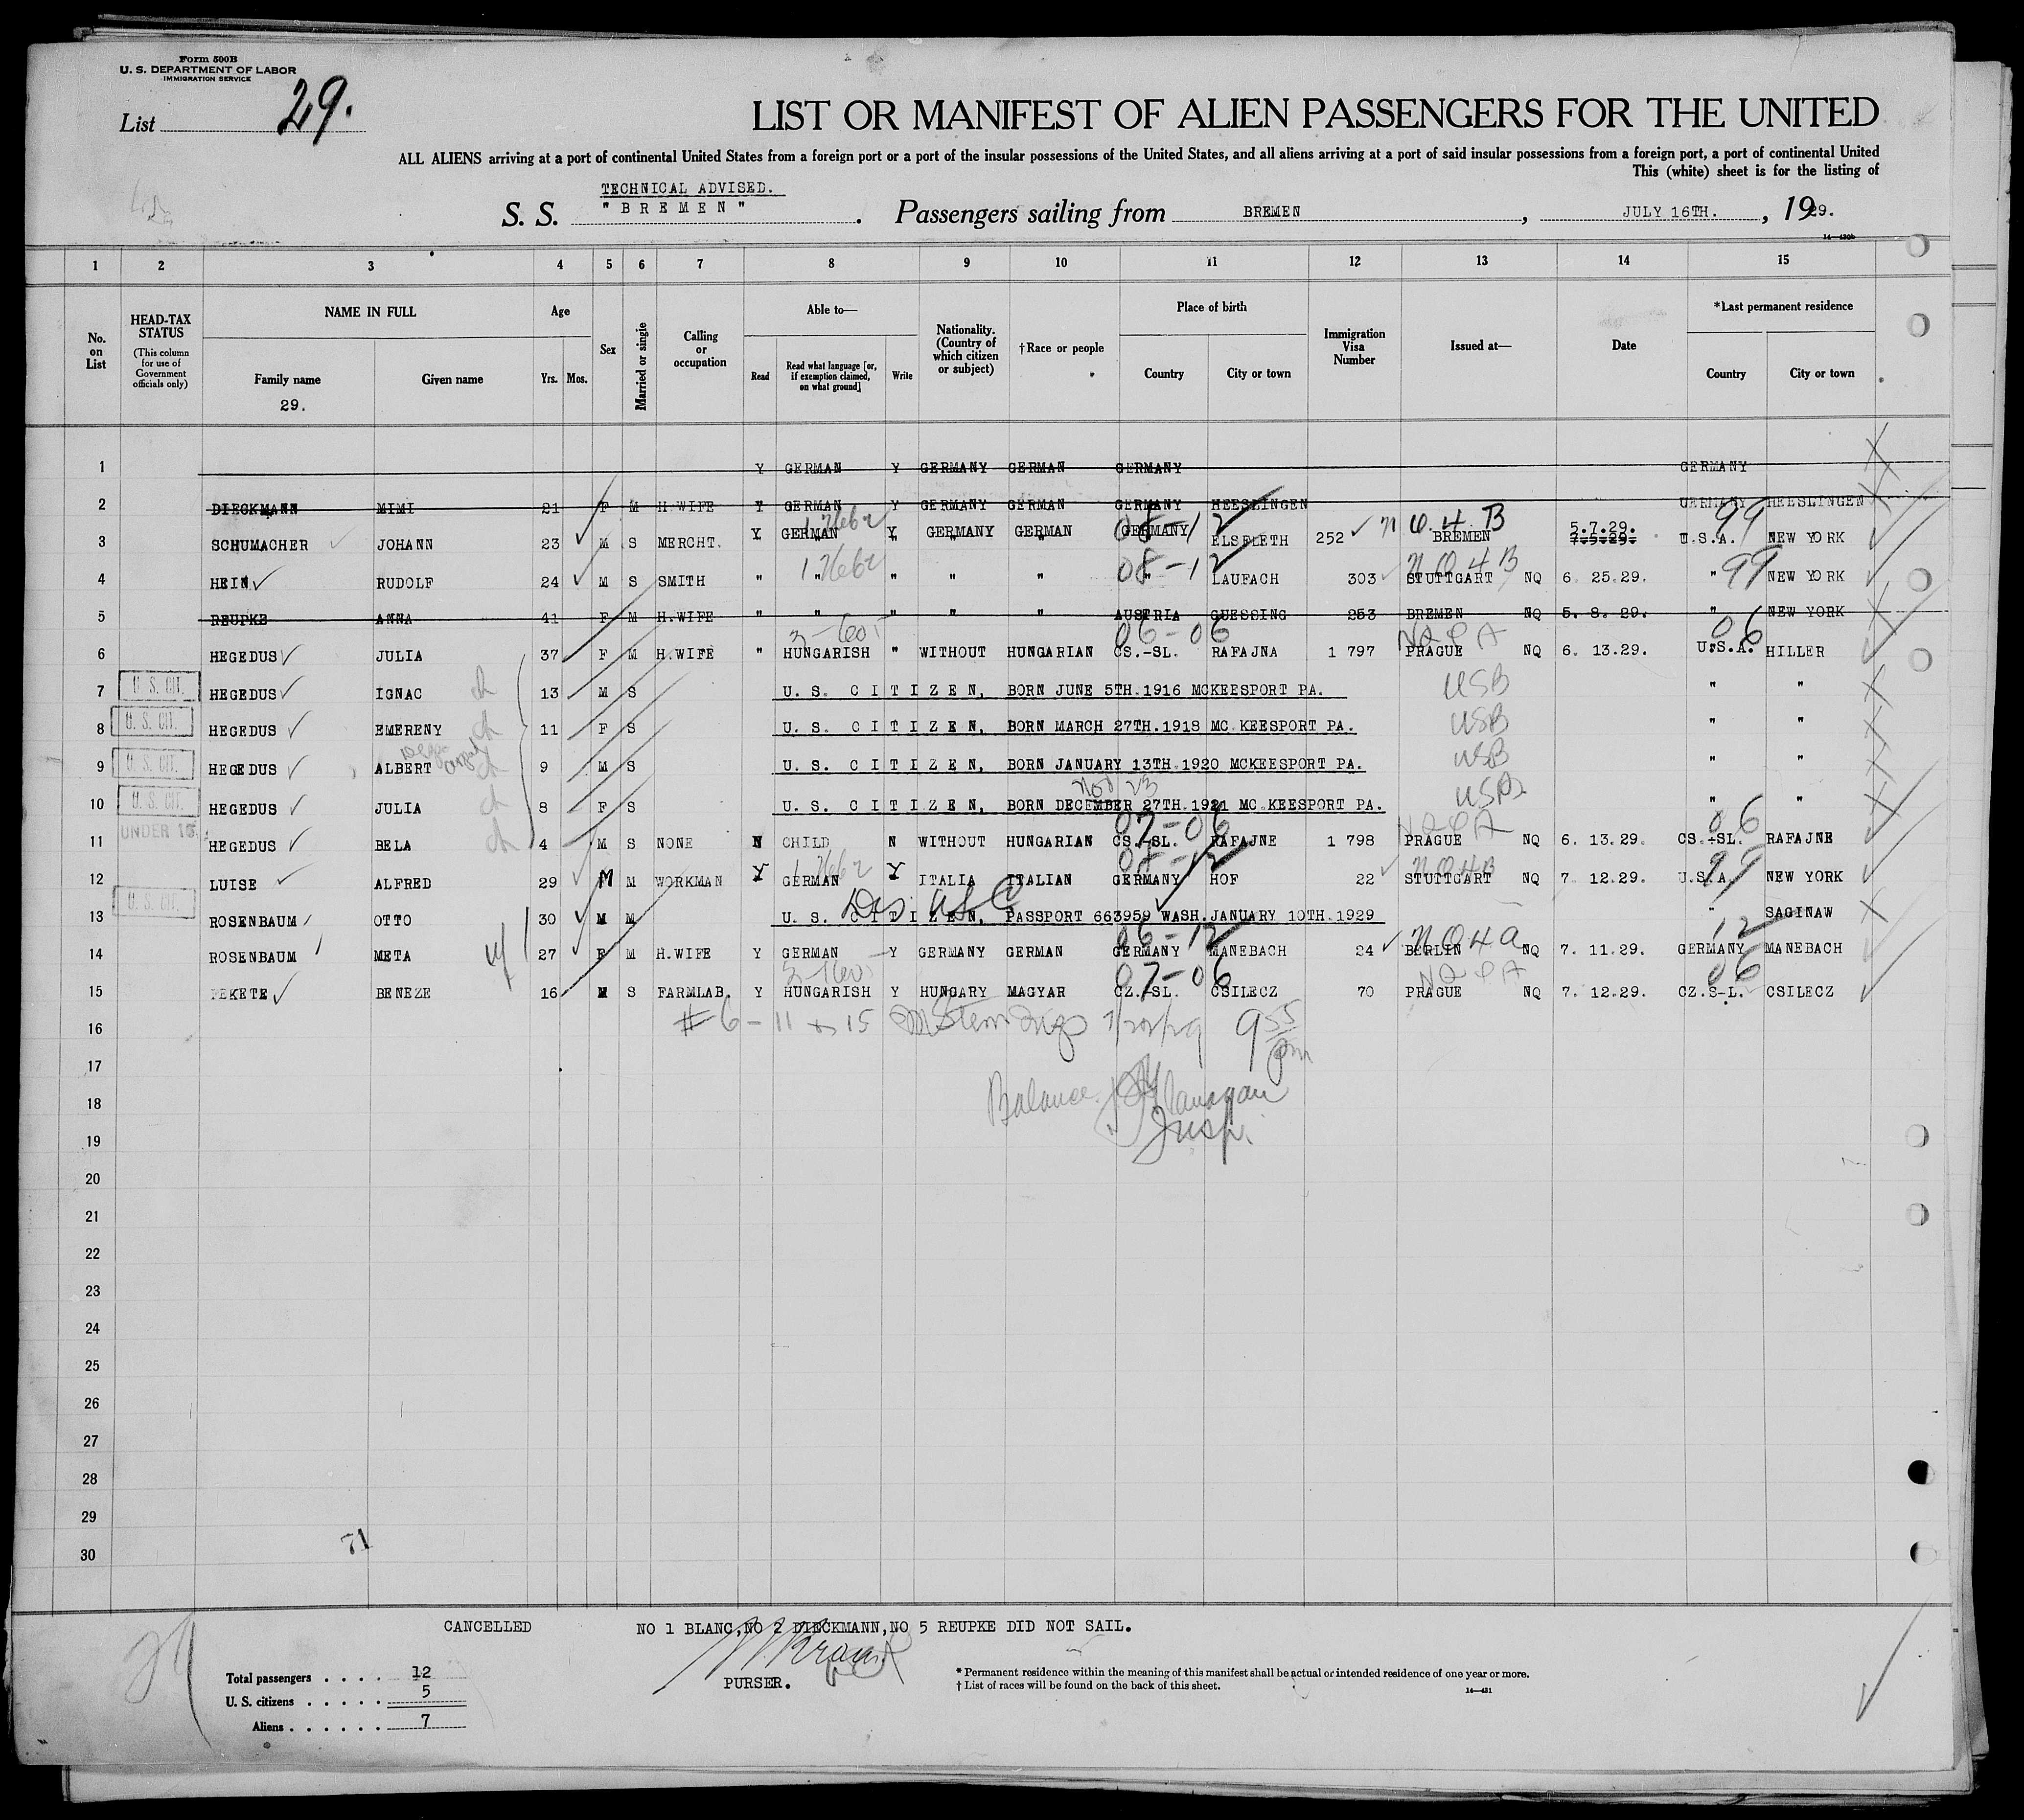 Form 500B
U. S. DEPARTMENT OF LABOR
IMMIGRATION SERVICE
List 29.
LIST OR MANIFEST OF ALIEN PASSENGERS FOR THE UNITED
ALL ALIENS arriving at a port of continental United States from a foreign port or a port of the insular possessions of the United States, and all aliens arriving at a port of said insular possessions from a foreign port, a port of continental United
This (white) sheet is for the listing of
TECHNICAL ADVISED.
S. S. "BREMEN" . Passengers sailing from BREMEN , JULY 16TH. , 1929.
14-430b
1 2 3 4 5 6 7 8 9 10 11 12 13 14 15
No. on List
HEAD-TAX STATUS
(This column for use of Government officials only)
NAME IN FULL
Family name
29.
Given name
Age
Yrs. Mos.
Sex
Married or single
Calling or occupation
Able to—
Read
Read what language [or, if exemption claimed, on what ground]
Write
Nationality. (Country of which citizen or subject)
†Race or people
Place of birth
Country
City or town
Immigration Visa Number
Issued at—
Date
*Last permanent residence
Country
City or town
1 Y GERMAN Y GERMANY GERMAN GERMANY GERMANY
2 DIECKMANN MIMI 21 F M H.WIFE Y GERMAN Y GERMANY GERMAN GERMANY HEESLINGEN GERMANY HEESLINGEN
3 SCHUMACHER JOHANN 23 M S MERCHT. Y GERMAN Y GERMANY GERMAN GERMANY ELSFLETH 252 BREMEN 5.7.29. U.S.A. NEW YORK
08-12 99
4 HEIN RUDOLF 24 M S SMITH " " " " " " LAUFACH 303 STUTTGART NQ 6. 25.29. " NEW YORK
08-12 99
5 REUPKE ANNA 41 F M H.WIFE " " " " " AUSTRIA GUESSING 253 BREMEN NQ 5. 8. 29. " NEW YORK
06-06 06
6 HEGEDUS JULIA 37 F M H.WIFE " HUNGARISH " WITHOUT HUNGARIAN CS.-SL. RAFAJNA 1 797 PRAGUE NQ 6. 13.29. U.S.A. HILLER
U. S. CIT.
7 HEGEDUS IGNAC ch 13 M S U. S. CITIZEN, BORN JUNE 5TH.1916 MCKEESPORT PA. USB " "
U. S. CIT.
8 HEGEDUS EMERENY ch 11 F S U. S. CITIZEN, BORN MARCH 27TH.1918 MC KEESPORT PA. USB " "
U. S. CIT.
9 HEGEDUS ALBERT ch 9 M S U. S. CITIZEN, BORN JANUARY 13TH.1920 MCKEESPORT PA. USB " "
U. S. CIT.
Nov 23
10 HEGEDUS JULIA ch 8 F S U. S. CITIZEN, BORN DECEMBER 27TH.1921 MC KEESPORT PA. USB " "
UNDER 16.
07-06 06
11 HEGEDUS BELA ch 4 M S NONE N CHILD N WITHOUT HUNGARIAN CS.-SL. RAFAJNE 1 798 PRAGUE NQ 6. 13.29. CS.-SL. RAFAJNE
08-12 99
12 LUISE ALFRED 29 M M WORKMAN Y GERMAN Y ITALIA ITALIAN GERMANY HOF 22 STUTTGART NQ 7. 12.29. U.S.A. NEW YORK
U. S. CIT.
13 ROSENBAUM OTTO 30 M M U. S. CITIZEN, PASSPORT 663959 WASH.JANUARY 10TH.1929 " SAGINAW
06-12 12
14 ROSENBAUM META 27 F M H.WIFE Y GERMAN Y GERMANY GERMAN GERMANY MANEBACH 24 BERLIN NQ 7. 11.29. GERMANY MANEBACH
07-06 06
15 FEKETE BENEZE 16 M S FARMLAB. Y HUNGARISH Y HUNGARY MAGYAR CZ.-SL. CSILECZ 70 PRAGUE NQ 7. 12.29. CZ.S-L. CSILECZ
16 #6-11 + 15 9 55 pm
17
18 Balance Flanagan
19 Insp.
20
21
22
23
24
25
26
27
28
29
30
71
CANCELLED NO 1 BLANC,NO 2 DIECKMANN,NO 5 REUPKE DID NOT SAIL.
PURSER.
Total passengers . . . . 12
U. S. citizens . . . . . 5
Aliens . . . . . . 7
* Permanent residence within the meaning of this manifest shall be actual or intended residence of one year or more.
† List of races will be found on the back of this sheet.
14-431